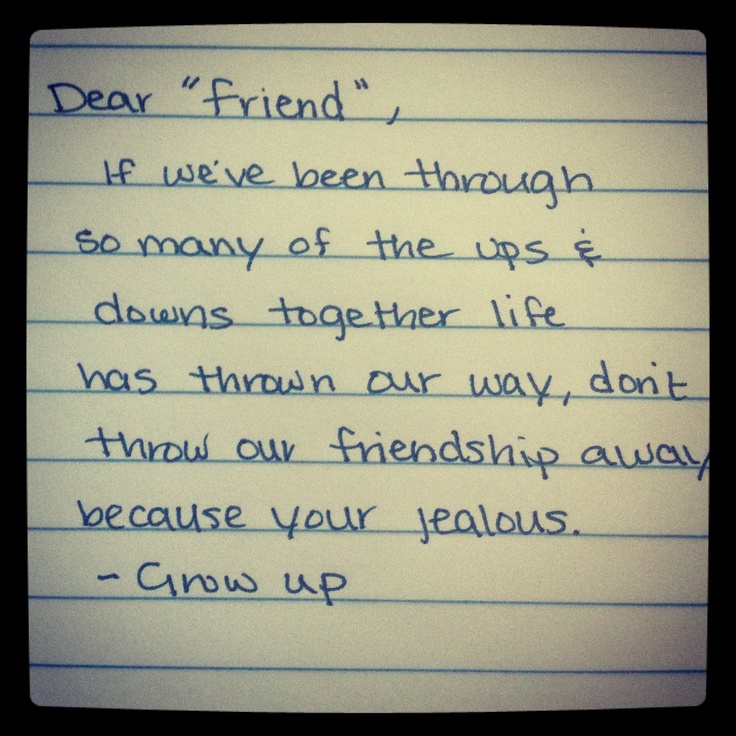 Dear "friend",
If we've been through
so many of the ups &
downs together life
has thrown our way, don't
throw our friendship away
because your jealous.
- Grow up